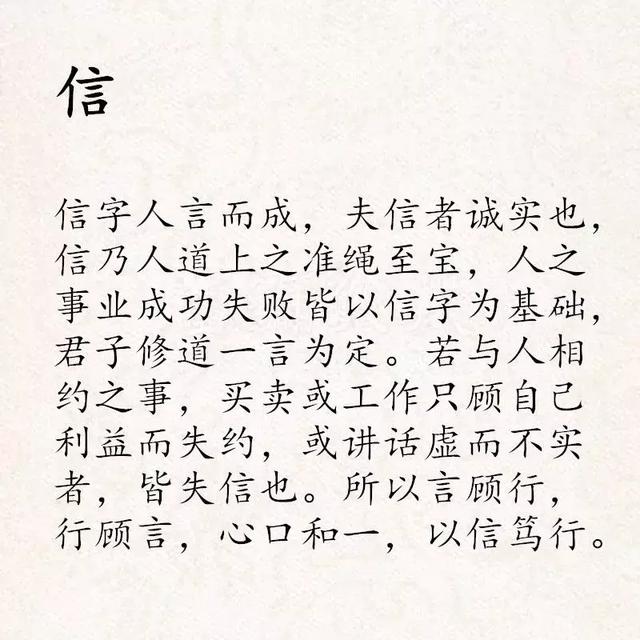 信
信字人言而成，夫信者诚实也，
信乃人道上之准绳至宝，人之
事业成功失败皆以信字为基础，
君子修道一言为定。若与人相
约之事，买卖或工作只顾自己
利益而失约，或讲话虚而不实
者，皆失信也。所以言顾行，
行顾言，心口和一，以信笃行。